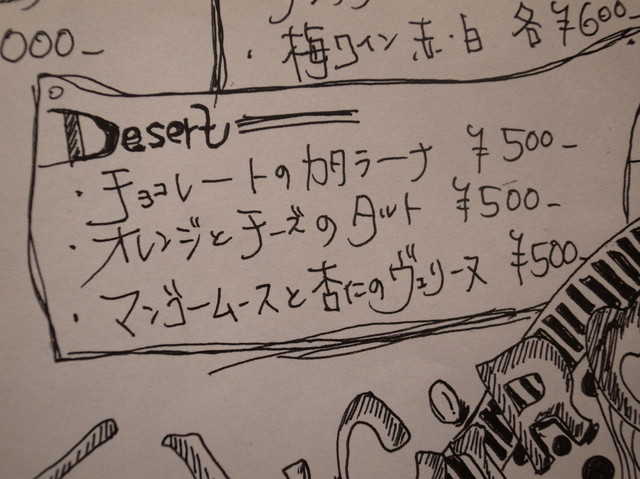 000-
・梅ワイン 赤・白 各¥600-
Desert
・チョコレートのカタラーナ ¥500-
・オレンジとチーズのタルト ¥500-
・マンゴームースと杏仁のヴェリーヌ ¥500-